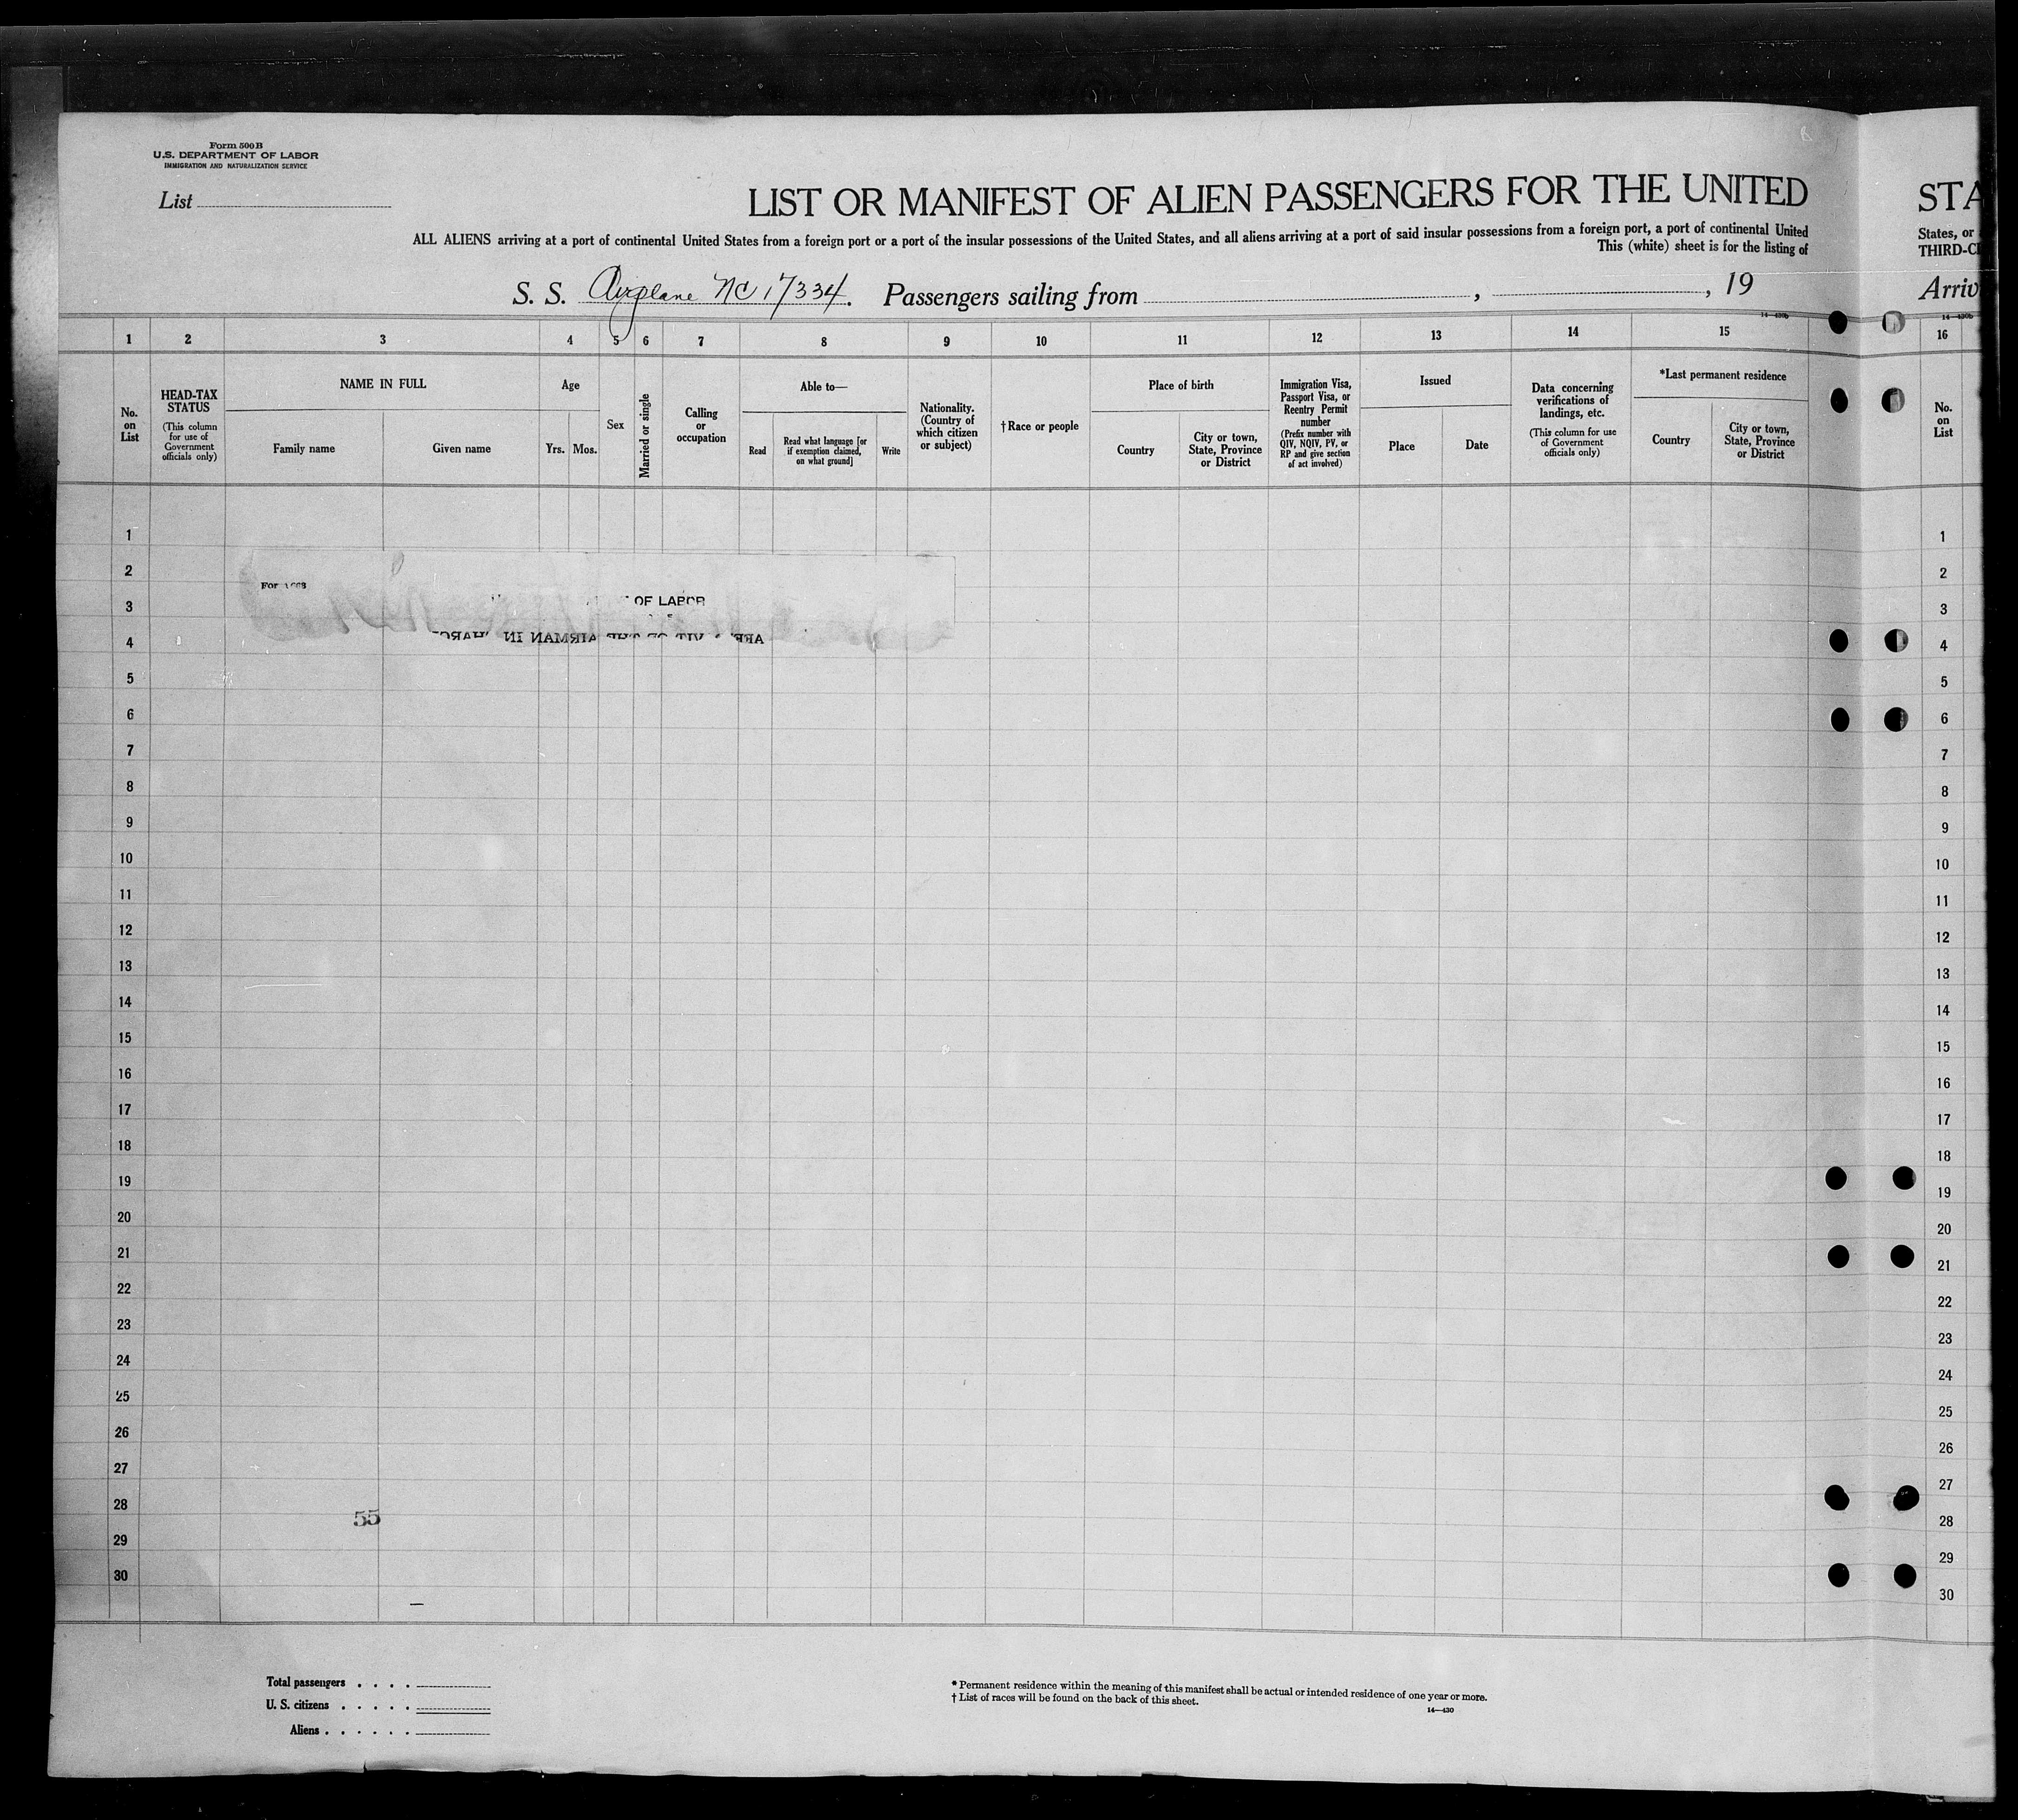 Form 500 B
U.S. DEPARTMENT OF LABOR
IMMIGRATION AND NATURALIZATION SERVICE
List
LIST OR MANIFEST OF ALIEN PASSENGERS FOR THE UNITED
STA
ALL ALIENS arriving at a port of continental United States from a foreign port or a port of the insular possessions of the United States, and all aliens arriving at a port of said insular possessions from a foreign port, a port of continental United
States, or
This (white) sheet is for the listing of
THIRD-CL
S. S. Airplane NC 17334. Passengers sailing from , , 19
Arriv
14—430b
14—430b
1 2 3 4 5 6 7 8 9 10 11 12 13 14 15 16
No. on List
HEAD-TAX STATUS
(This column for use of Government officials only)
NAME IN FULL
Family name
Given name
Age
Yrs. Mos.
Sex
Married or single
Calling or occupation
Able to—
Read
Read what language [or if exemption claimed, on what ground]
Write
Nationality. (Country of which citizen or subject)
†Race or people
Place of birth
Country
City or town, State, Province or District
Immigration Visa, Passport Visa, or Reentry Permit number
(Prefix number with QIV, NQIV, PV, or RP and give section of act involved)
Issued
Place
Date
Data concerning verifications of landings, etc.
(This column for use of Government officials only)
*Last permanent residence
Country
City or town, State, Province or District
No. on List
1 1
2 2
3 3
OF LABOR
4 4
5 5
6 6
7 7
8 8
9 9
10 10
11 11
12 12
13 13
14 14
15 15
16 16
17 17
18 18
19 19
20 20
21 21
22 22
23 23
24 24
25 25
26 26
27 27
28 28
55
29 29
30 30
Total passengers . . . .
U. S. citizens . . . . .
Aliens . . . . . .
* Permanent residence within the meaning of this manifest shall be actual or intended residence of one year or more.
† List of races will be found on the back of this sheet.
14—430